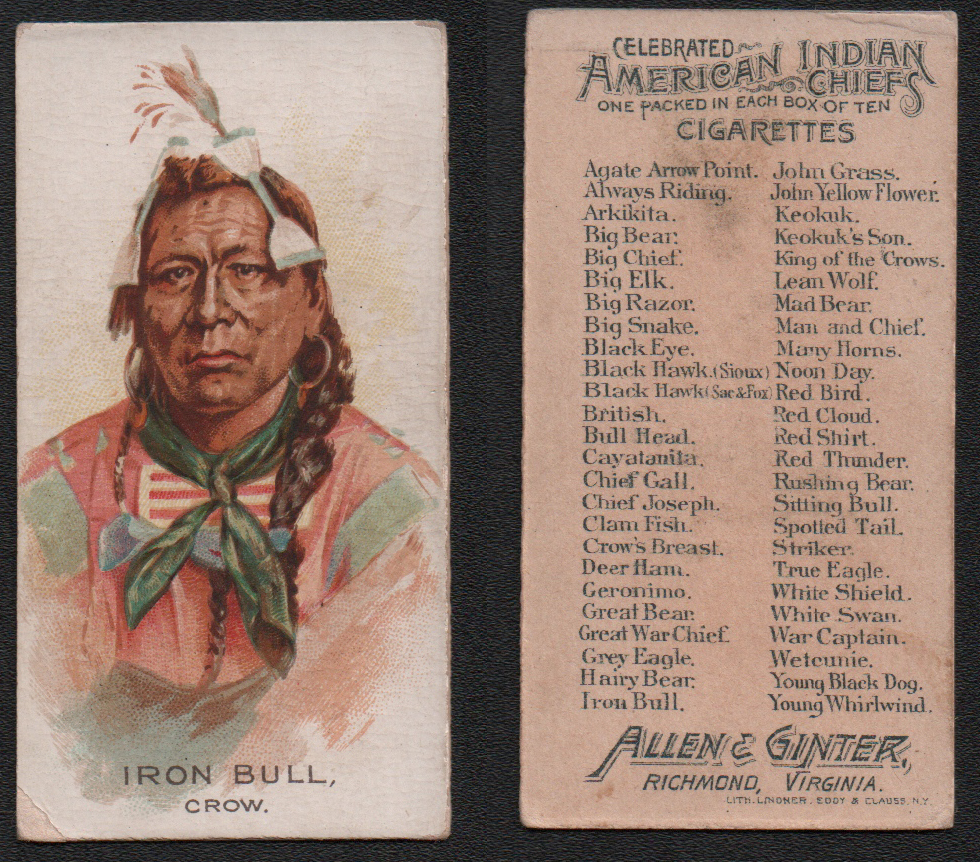 IRON BULL,
CROW.
CELEBRATED
AMERICAN INDIAN
CHIEFS
ONE PACKED IN EACH BOX OF TEN
CIGARETTES
Agate Arrow Point.
Always Riding.
Arkikita.
Big Bear.
Big Chief.
Big Elk.
Big Razor.
Big Snake.
Black Eye.
Black Hawk.(Sioux)
Black Hawk(Sac&Fox)
British.
Bull Head.
Cayatanita.
Chief Gall.
Chief Joseph.
Clam Fish.
Crow's Breast.
Deer Ham.
Geronimo.
Great Bear.
Great War Chief.
Grey Eagle.
Hairy Bear.
Iron Bull.
John Grass.
John Yellow Flower.
Keokuk.
Keokuk's Son.
King of the Crows.
Lean Wolf.
Mad Bear.
Man and Chief.
Many Horns.
Noon Day.
Red Bird.
Red Cloud.
Red Shirt.
Red Thunder.
Rushing Bear.
Sitting Bull.
Spotted Tail.
Striker.
True Eagle.
White Shield.
White Swan.
War Captain.
Wetcunie.
Young Black Dog.
Young Whirlwind.
ALLEN & GINTER,
RICHMOND, VIRGINIA.
LITH. LINDNER, EDDY & CLAUSS, N.Y.